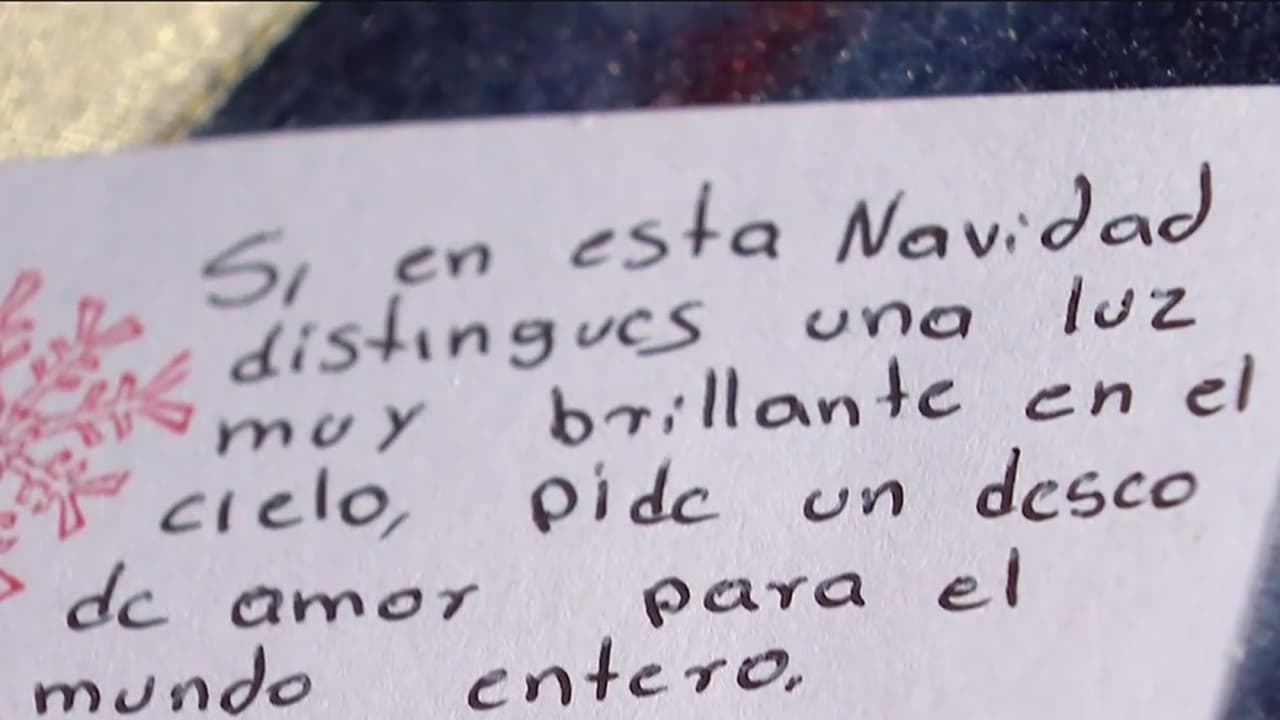 Si en esta Navidad
distingues una luz
muy brillante en el
cielo, pide un deseo
de amor para el
mundo entero.